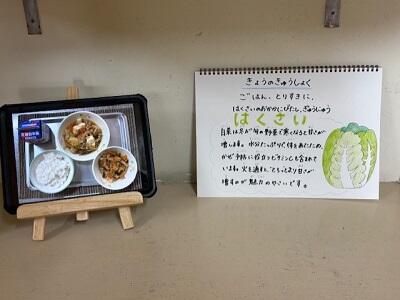 きょうのきゅうしょく
ごはん、とりすきに、
はくさいのおかかにびたし、ぎゅうにゅう
はくさい
白菜は冬が旬の野菜で寒くなると甘さが
増します。水分たっぷりで体をあたため、
かぜ予防に役立つビタミンCも含まれて
います。火を通すと、とろっとより甘さが
増すのが魅力のやさいです。